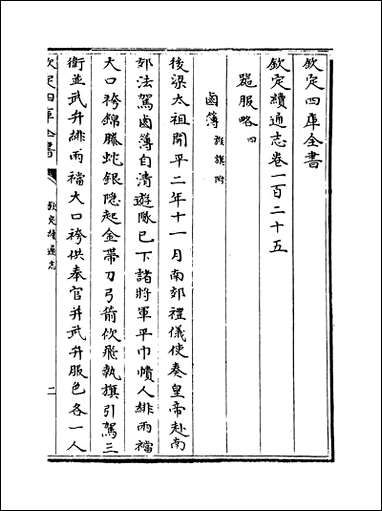 欽定四庫全書
欽定續通志卷一百二十五
器服略四
鹵簿雜旗附
後梁太祖開平二年十一月南郊禮儀使奏皇帝赴南
郊法駕鹵簿自清遊隊已下諸將軍平巾幘人緋兩襠
大口袴錦騰蛇銀隱起金帶刀弓箭佽飛執旗引駕三
衛並武弁緋兩襠大口袴供奉官并武弁服色各一人
欽定四庫全書
欽定續通志